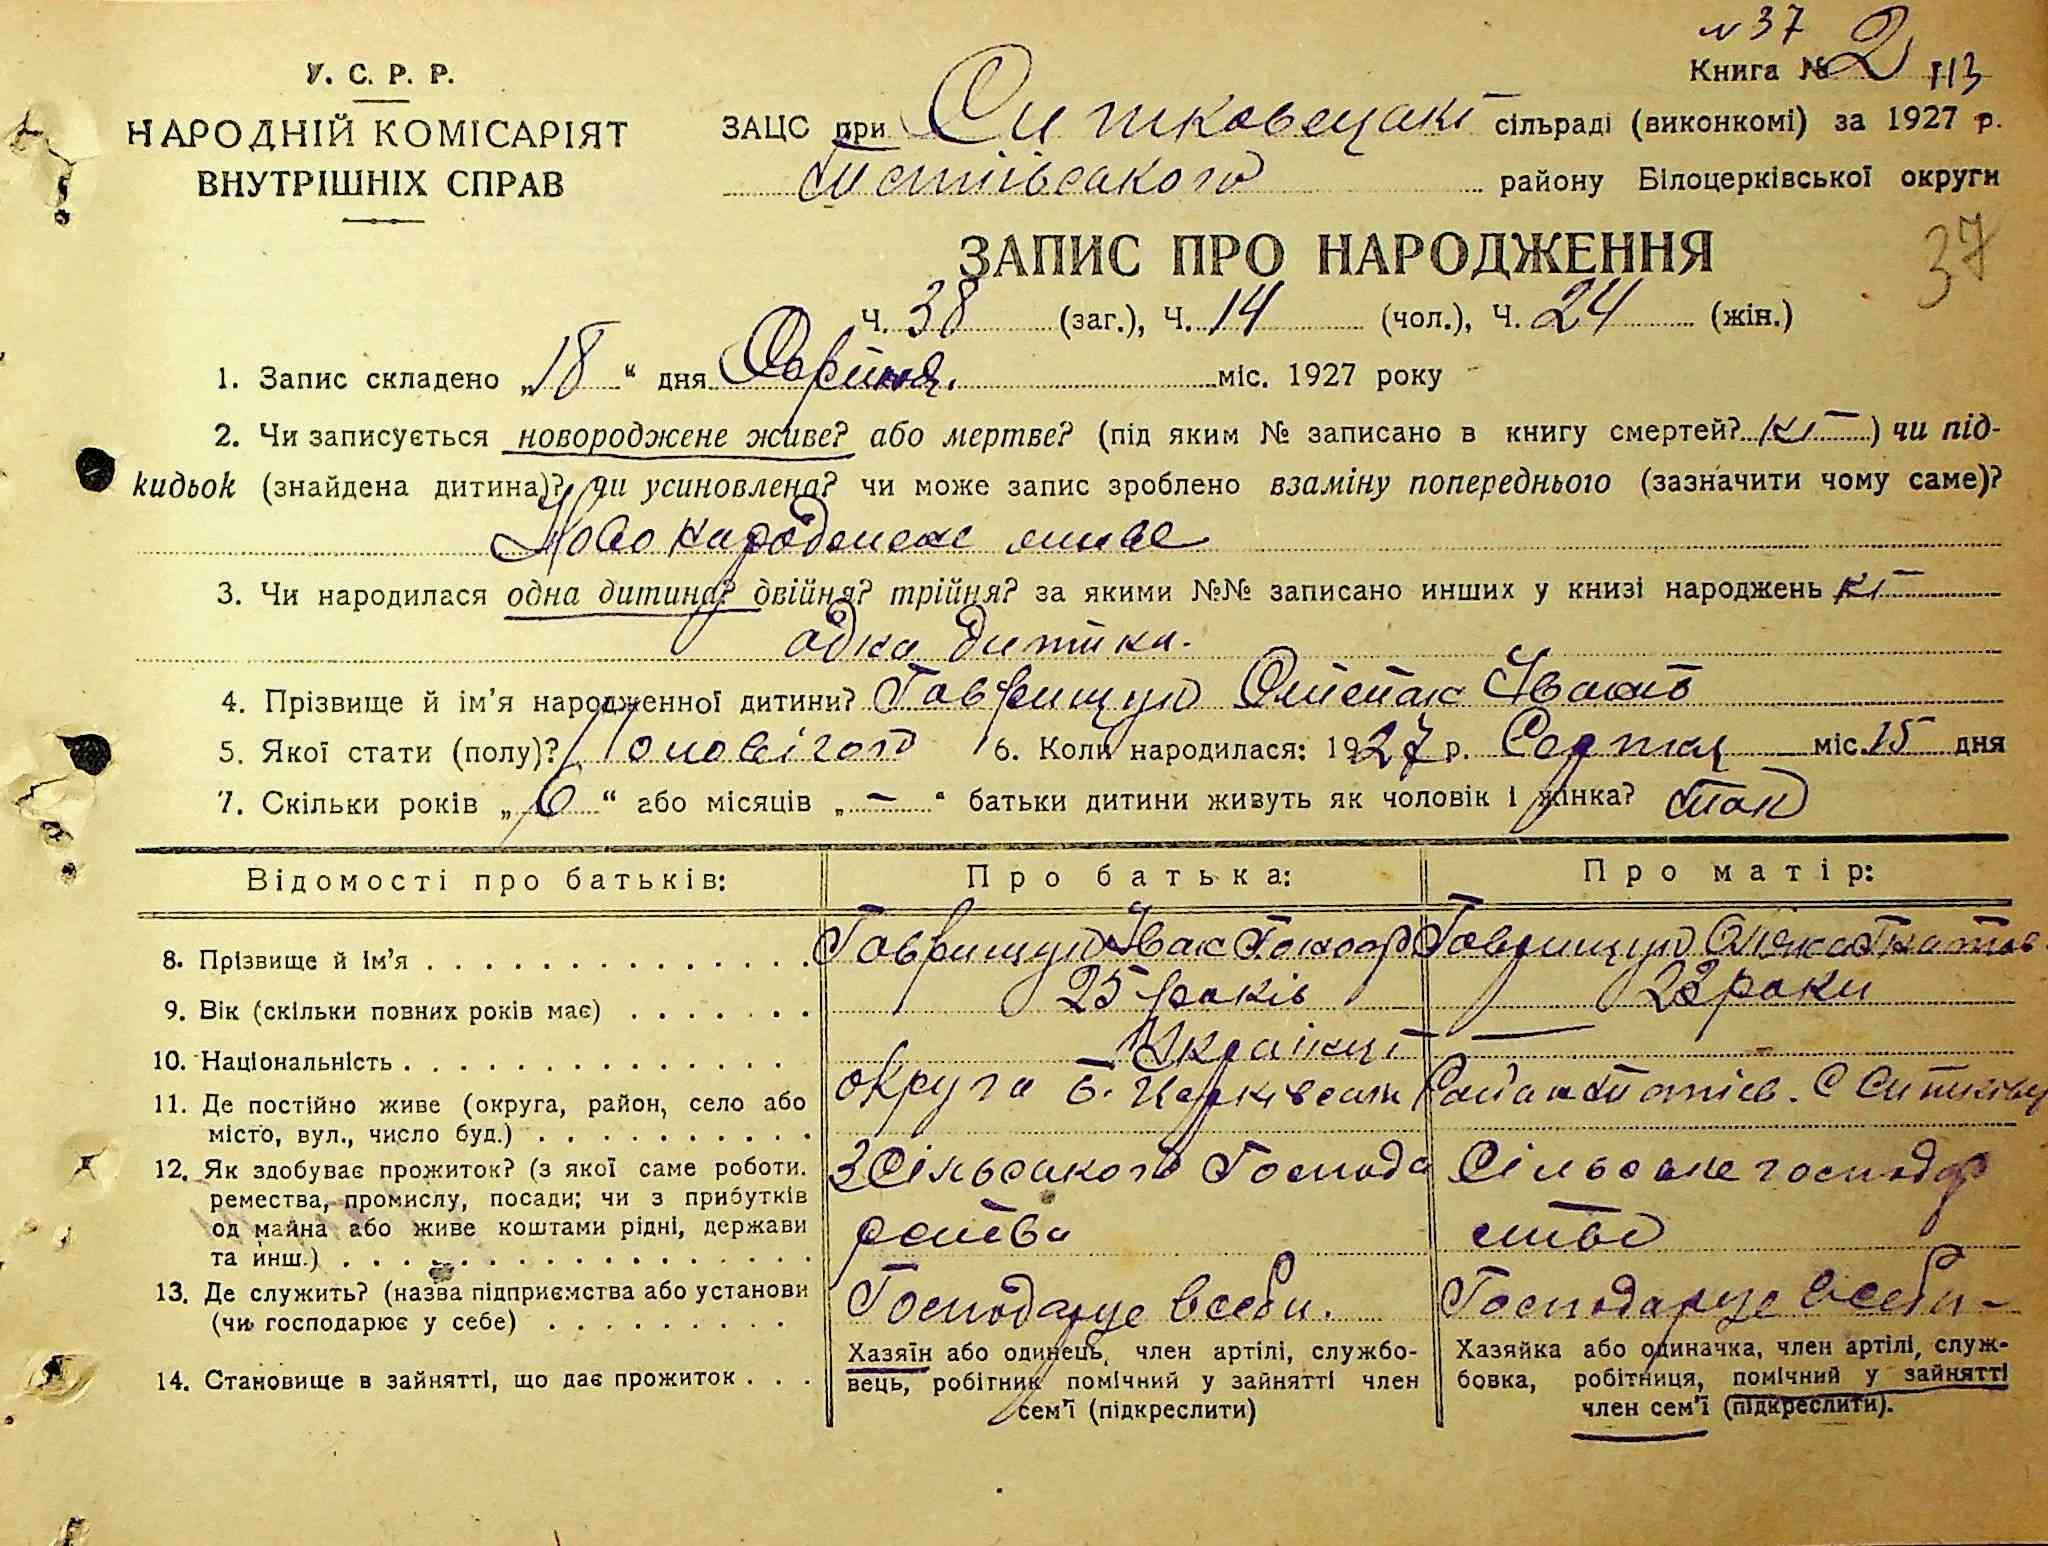 № 37
Книга № 2 113
У. С. Р. Р.
НАРОДНІЙ КОМІСАРІЯТ
ВНУТРІШНІХ СПРАВ
ЗАЦС при Ситковецькі сільраді (виконкомі) за 1927 р.
Тетіївського району Білоцерківської округи
ЗАПИС ПРО НАРОДЖЕННЯ
37
Ч. 38 (заг.), Ч. 14 (чол.), Ч. 24 (жін.)
1. Запис складено „18“ дня Серпня. міс. 1927 року
2. Чи записується новороджене живе? або мертве? (під яким № записано в книгу смертей? ні) чи під-
кидьок (знайдена дитина)? чи усиновлена? чи може запис зроблено взаміну попереднього (зазначити чому саме)?
Ново народженне живе
3. Чи народилася одна дитина? двійня? трійня? за якими №№ записано инших у книзі народжень ні
одна дитина.
4. Прізвище й ім'я народженної дитини? Гаврищук Степан Іванов
5. Якої стати (полу)? Чоловічого 6. Коли народилася: 1927 р. Серпня міс. 15 дня
7. Скільки років „6“ або місяців „–“ батьки дитини живуть як чоловік і жінка? так
Відомості про батьків: Про батька: Про матір:
8. Прізвище й ім'я Гаврищук Іван Гаврищук Гнатов
9. Вік (скільки повних років має) 25 років 23 роки
10. Національність Українці —
11. Де постійно живе (округа, район, село або округа Б. Церківська Район Тетіїв. С Ситківці
місто, вул., число буд.)
12. Як здобуває прожиток? (з якої саме роботи. З Сільського Господа Сільське господар
ремества, промислу, посади; чи з прибутків
од майна або живе коштами рідні, держави рства ство
та инш.)
13. Де служить? (назва підприємства або установи Господарує в себи. Господарує в себи –
(чи господарює у себе)
14. Становище в зайнятті, що дає прожиток
Хазяїн або одинець, член артілі, службо-
вець, робітник помічний у зайнятті член
сем'ї (підкреслити)
Хазяйка або одиначка, член артілі, служ-
бовка, робітниця, помічний у зайнятті
член сем'ї (підкреслити).